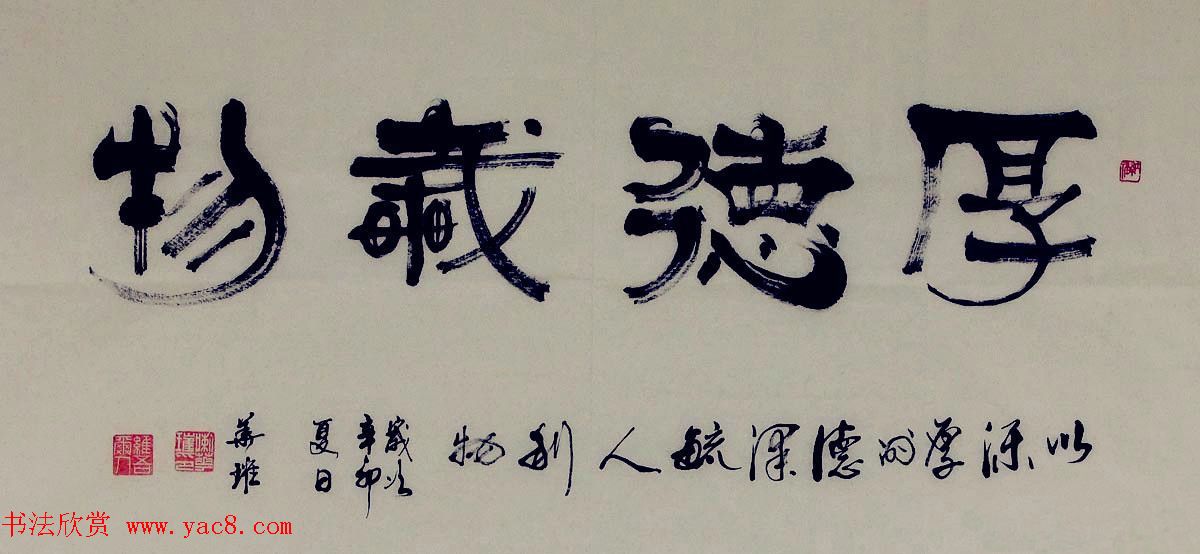 厚德載物
以深厚的德澤毓人利物
歲次
辛卯
夏日
書法欣賞 www.yac8.com